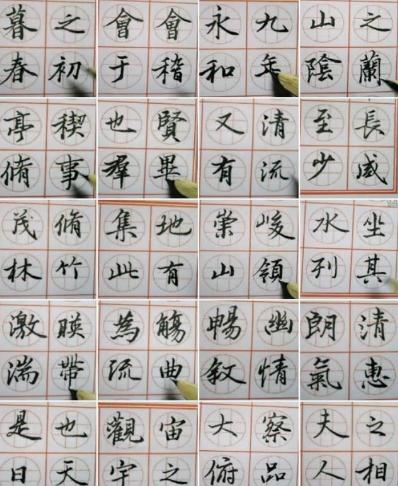 暮春之初
會于會稽
永和九年
山陰之蘭
亭脩禊事
也羣賢畢
又有清流
至少長咸
茂林脩竹
集此地有
崇山峻領
水列坐其
激湍暎帶
為流觴曲
暢叙幽情
朗氣清惠
是日也天
觀宇宙之
大俯察品
夫人之相